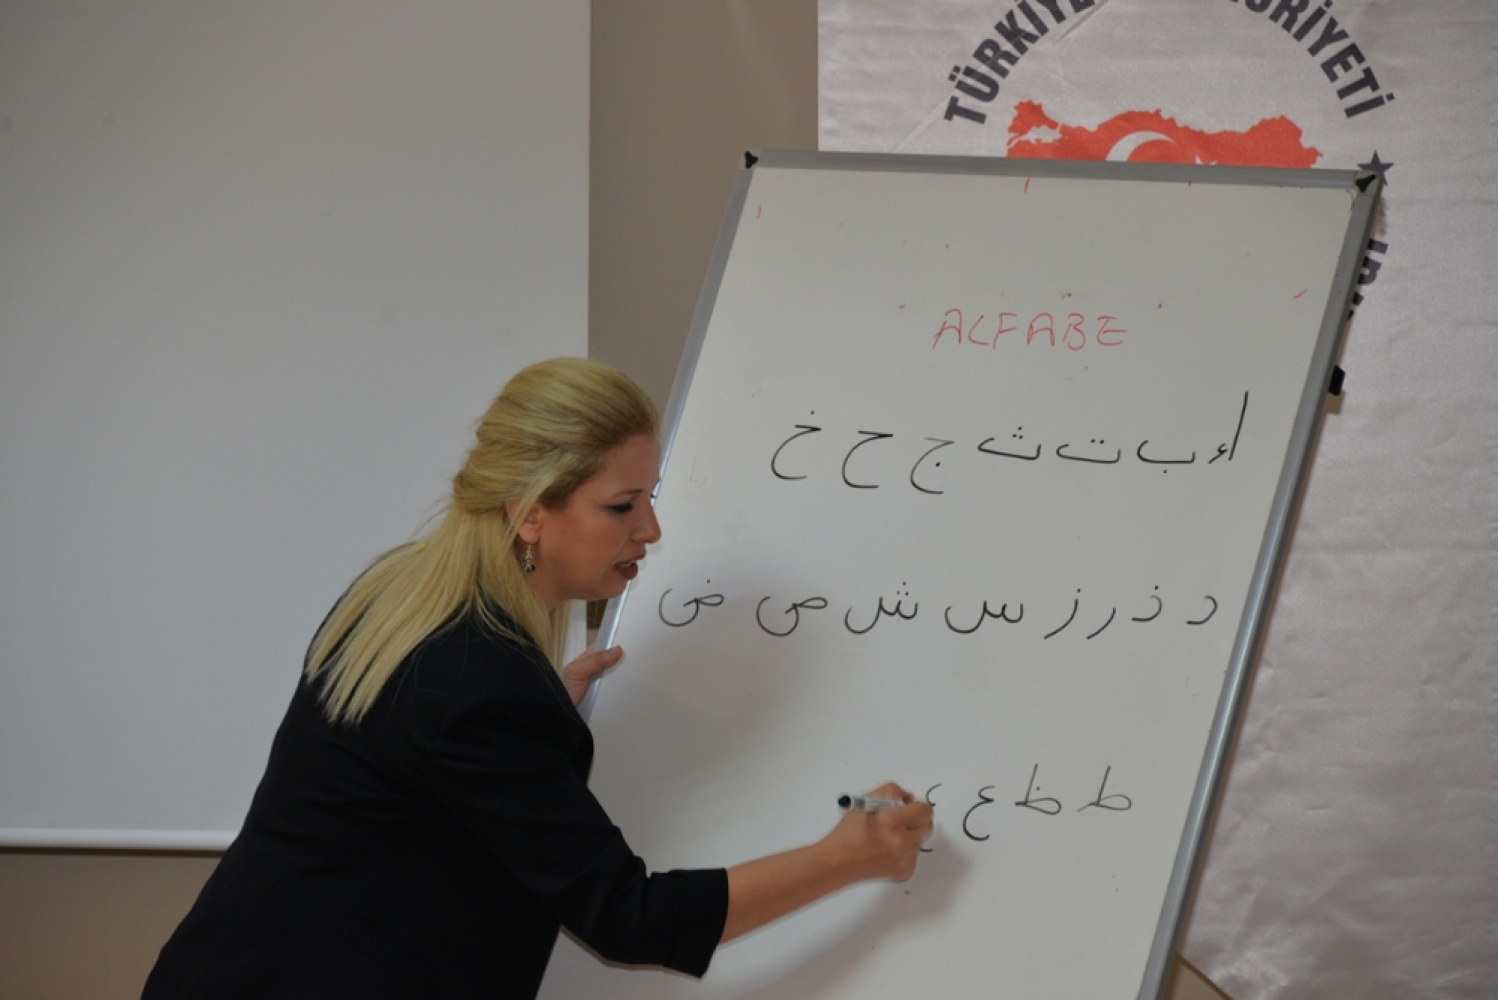 TÜRKİYE
ALFABE
أ ء ب ت ث ج ح خ
د ذ ر ز س ش ص ض
ط ظ ع